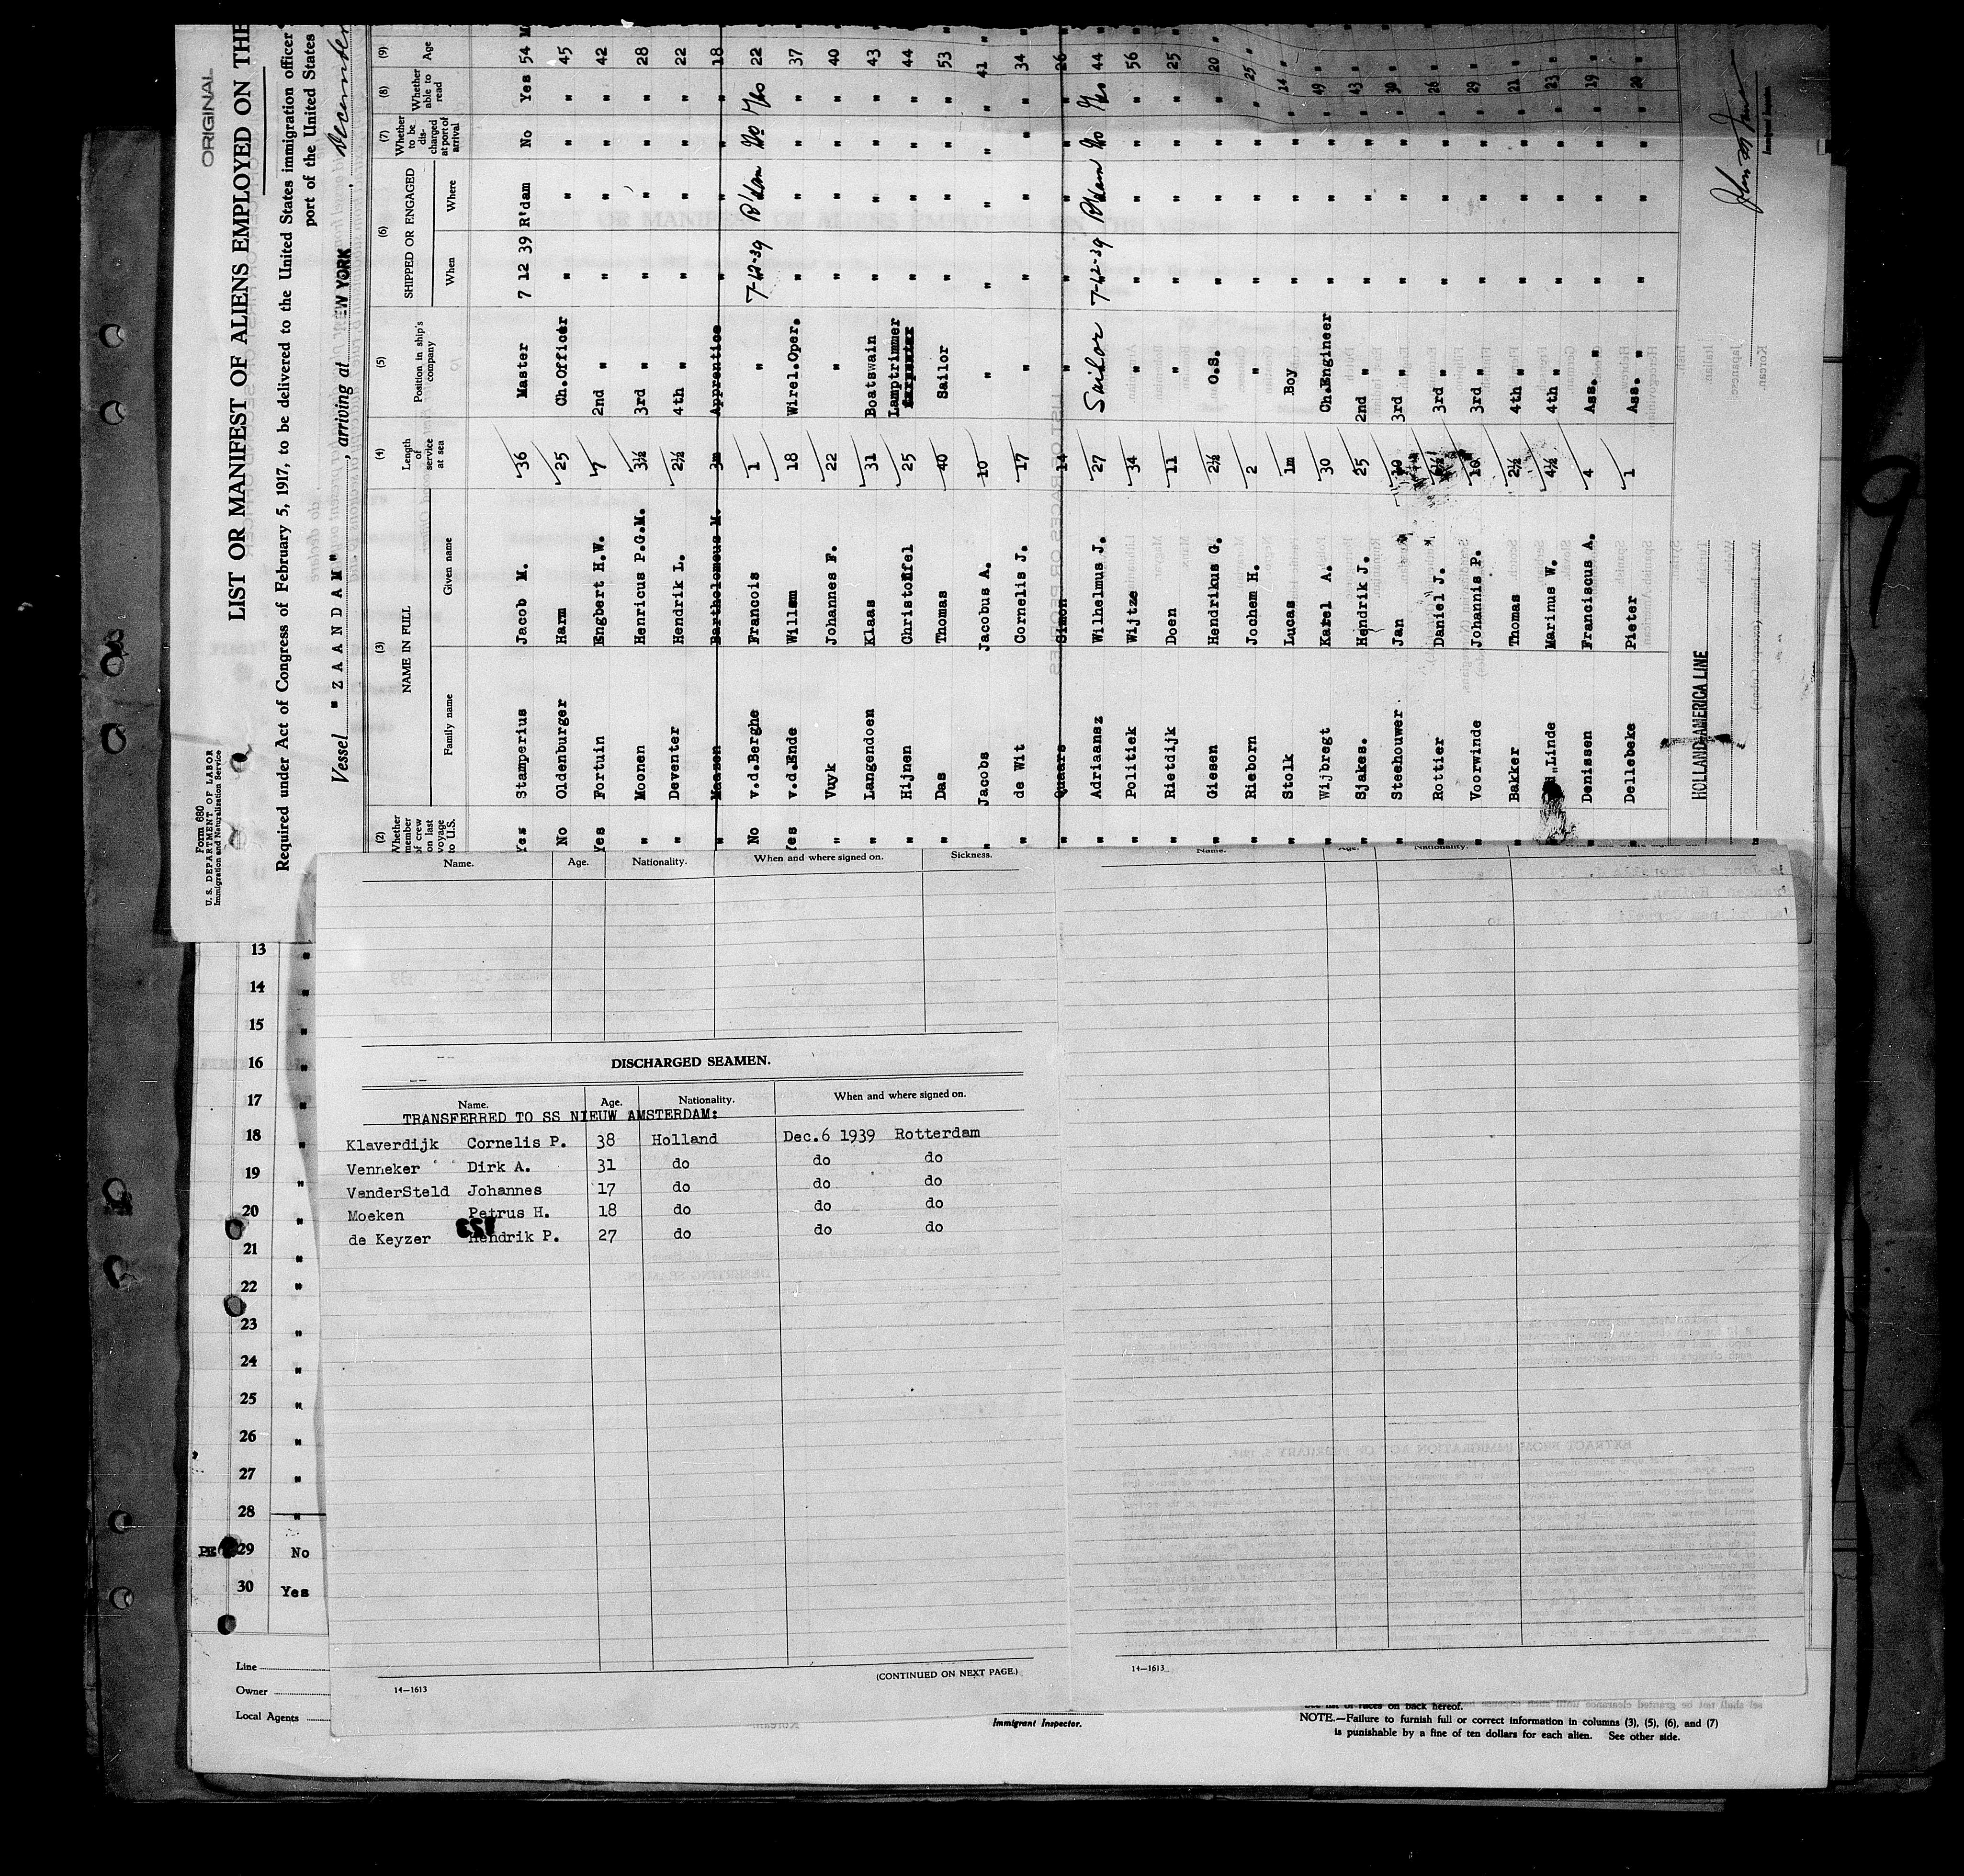 ORIGINAL
Form 680
U. S. DEPARTMENT OF LABOR
Immigration and Naturalization Service
LIST OR MANIFEST OF ALIENS EMPLOYED ON THE
Required under Act of Congress of February 5, 1917, to be delivered to the United States immigration officer
port of the United States
Vessel "ZAANDAM", arriving at NEW YORK, December
(2) (3) (4) (5) (6) (7) (8) (9)
Whether member of crew on last voyage to U.S. NAME IN FULL Length of service at sea Position in ship's company SHIPPED OR ENGAGED Whether to be discharged at port of arrival Whether able to read Age
Family name Given name When Where
Yes Stamperius Jacob M. 36 Master 7 12 39 R'dam No Yes 54 M
No Oldenburger Harm 25 Ch.Officer " " " " 45
Yes Fortuin Engbert H.W. 7 2nd " " " " " 42
" Moonen Henricus P.G.M. 3½ 3rd " " " " " 28
" Deventer Hendrik L. 2½ 4th " " " " " 22
Maasen Bartholomeus M. 3m Apprentice " " " " 18
No v.d.Berghe Francois 1 " 7-12-39 R'dam No Yes 22
Yes v.d.Ende Willem 18 Wirel.Oper. " " " " 37
" Vuyk Johannes F. 22 " " " " " 40
" Langendoen Klaas 31 Boatswain " " " " 43
" Hijnen Christoffel 25 Lamptrimmer " " " " 44
" Das Thomas 40 Sailor " " " " 53
" Jacobs Jacobus A. 10 " " " " " 41
" de Wit Cornelis J. 17 " " " " " 34
" Quaars Simon 14 " " " " " 26
" Adriaansz Wilhelmus J. 27 Sailor 7-12-39 R'dam No Yes 44
" Politiek Wijtze 34 " " " " " 56
" Rietdijk Doen 11 " " " " " 25
" Giesen Hendrikus G. 2½ O.S. " " " " 20
" Rieborn Jochem H. 2 " " " " " 25
" Stolk Lucas 1m Boy " " " " 14
" Wijbregt Karel A. 30 Ch.Engineer " " " " 49
" Sjakes. Hendrik J. 25 2nd " " " " " 43
" Steehouwer Jan 3rd " " " " "
" Rottier Daniel J. 3rd " " " " " 26
" Voorwinde Johannis P. 10 3rd " " " " " 29
" Bakker Thomas 2½ 4th " " " " " 21
Linde Marinus W. 4½ 4th " " " " " 23
" Denissen Franciscus A. 4 Ass. " " " " " 19
" Dellebeke Pieter 1 Ass. " " " " " 20
HOLLAND-AMERICA LINE
Immigrant Inspector.
9
Name. Age. Nationality. When and where signed on. Sickness.
Name. Age. Nationality.
DISCHARGED SEAMEN.
Name. Age. Nationality. When and where signed on.
TRANSFERRED TO SS NIEUW AMSTERDAM:
Klaverdijk Cornelis P. 38 Holland Dec.6 1939 Rotterdam
Venneker Dirk A. 31 do do do
VanderSteld Johannes 17 do do do
Moeken Petrus H. 18 do do do
de Keyzer Hendrik P. 27 do do do
123
(CONTINUED ON NEXT PAGE.)
14—1613
14—1613
13 "
14 "
15 "
16 "
17 "
18 "
19 "
20 "
21 "
22 "
23 "
24 "
25 "
26 "
27 "
28 "
29 No
30 Yes
Line
Owner
Local Agents
Immigrant Inspector.
See list of races on back hereof.
NOTE.—Failure to furnish full or correct information in columns (3), (5), (6), and (7)
is punishable by a fine of ten dollars for each alien. See other side.